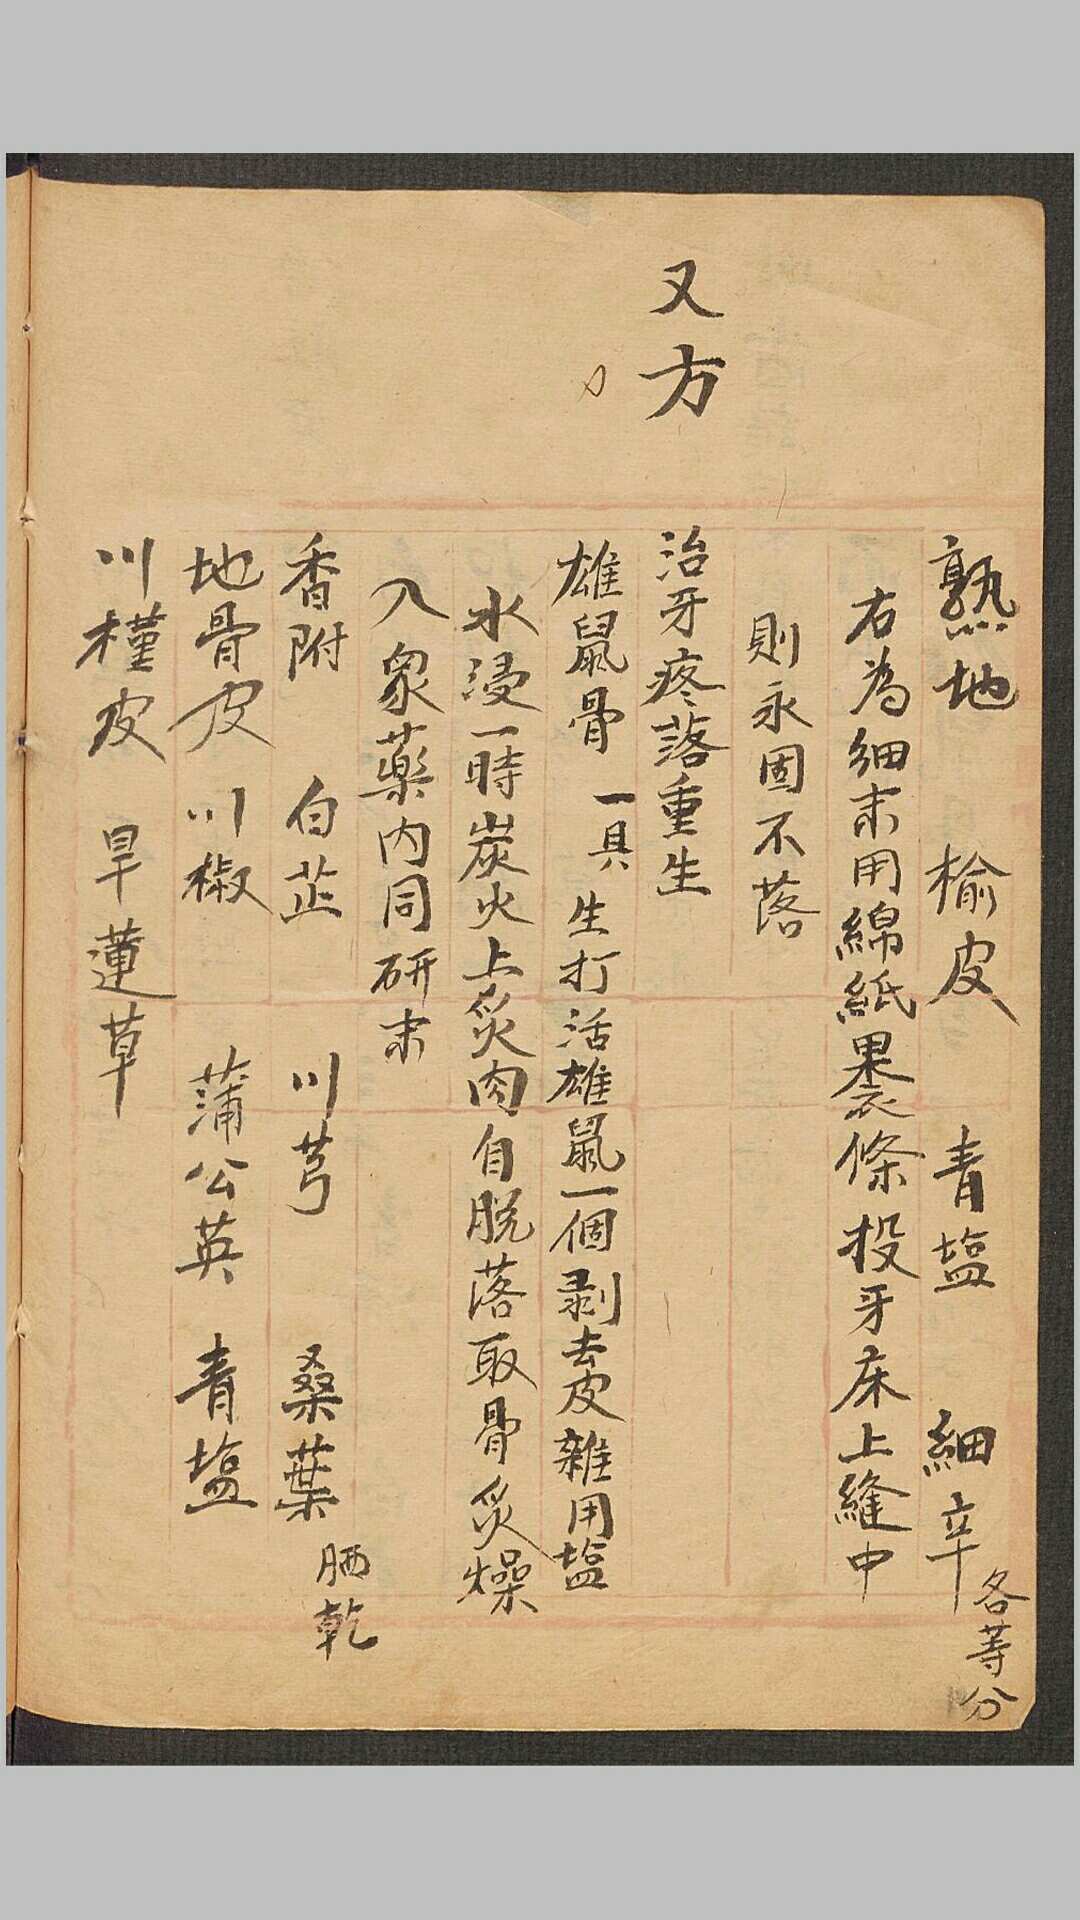 熟地 榆皮 青塩 細辛 各等分
右為細末用綿紙裹條投牙床上縫中
則永固不落
又方
治牙疼落重生
雄鼠骨 一具 生打活雄鼠一個剥去皮雜用塩
水浸一時炭火上炙肉自脱落取骨炙燥
入衆藥内同研末
香附 白芷 川芎 桑葉 晒乾
地骨皮 川椒 蒲公英 青塩
川槿皮 旱蓮草